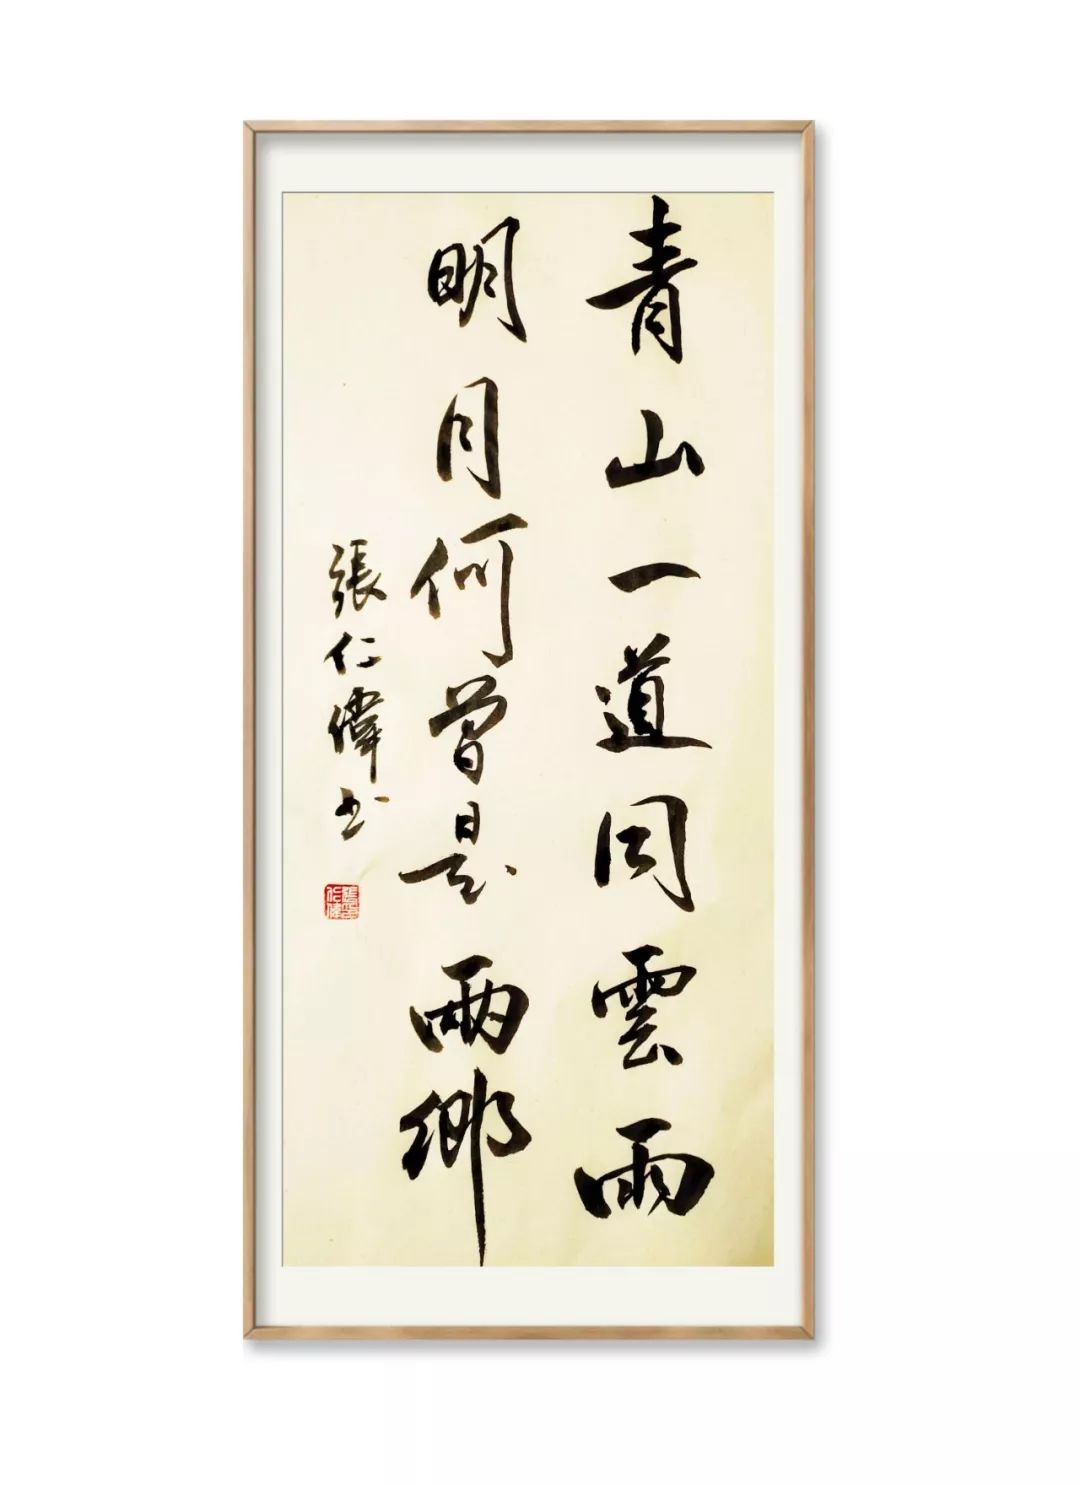 青山一道同雲雨
明月何曾是兩鄉
張仁偉书
張仁偉